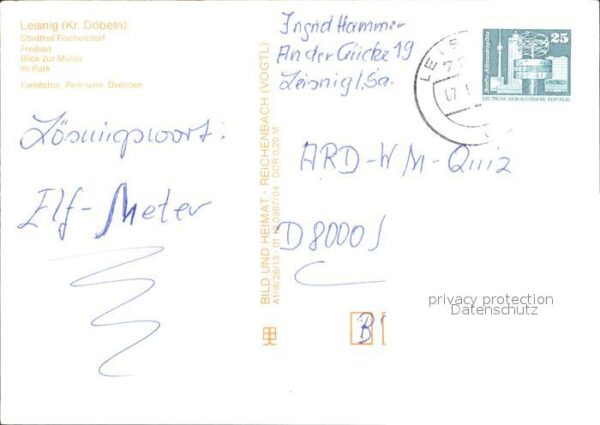 Leisnig (Kr. Döbeln)
Stadtteil Fischendorf
Freibad
Blick zur Mulde
Im Park
Farbfotos: Dresden
Lösungswort:
Elf-Meter
BILD UND HEIMAT · REICHENBACH (VOGTL)
A1/III/26/13 · 01 DDR 0,20 M
Ingrid Hammer
An der 19
Leisnig/Sa.
LEIS
25
DEUTSCHE DEMOKRATISCHE REPUBLIK
ARD-WM-Quiz
D 8000
privacy protection
Datenschutz